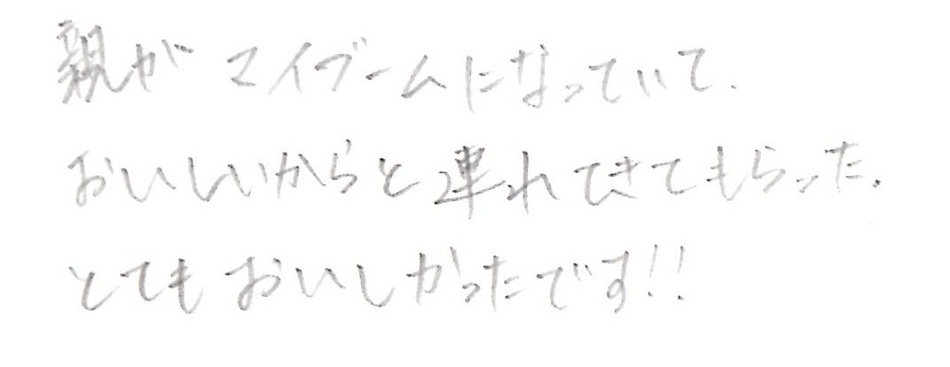 親がマイブームになっていて、
おいしいからと連れてきてもらった。
とてもおいしかったです!!